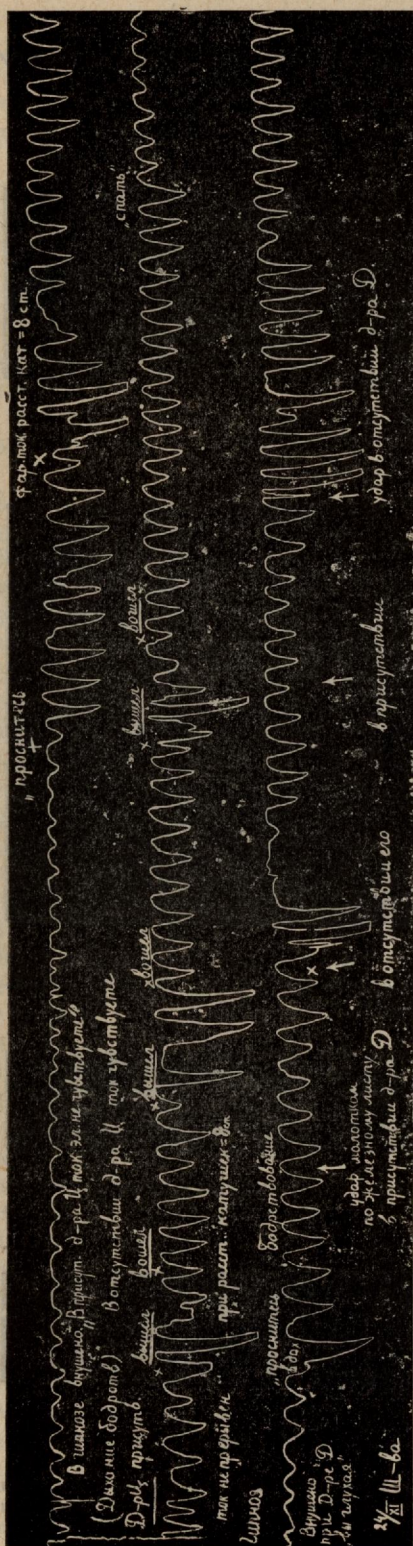 "проснитесь
фар. ток расст. кат = 8 cm.
В гипнозе внушено „В присут. д-ра Ц ток эл. не чувствуете"
(Дыхание бодрств) В отсутствии д-ра Ц ток чувствуете
Д-рЦ присутв.
вышел вошел вышел вошел вышел вошел „спать"
ток непрерывен при расст. катушек =8cm
Гипноз „проснитесь бодрствование
вдох.
Внушено
при Д-ре Д
„вы глухая"
удар молотком
по железному листу
в присутствии д-ра Д
в отсутствии его
в присутствии
удар в отсутствии д-ра Д.
24/XI Ш-ва